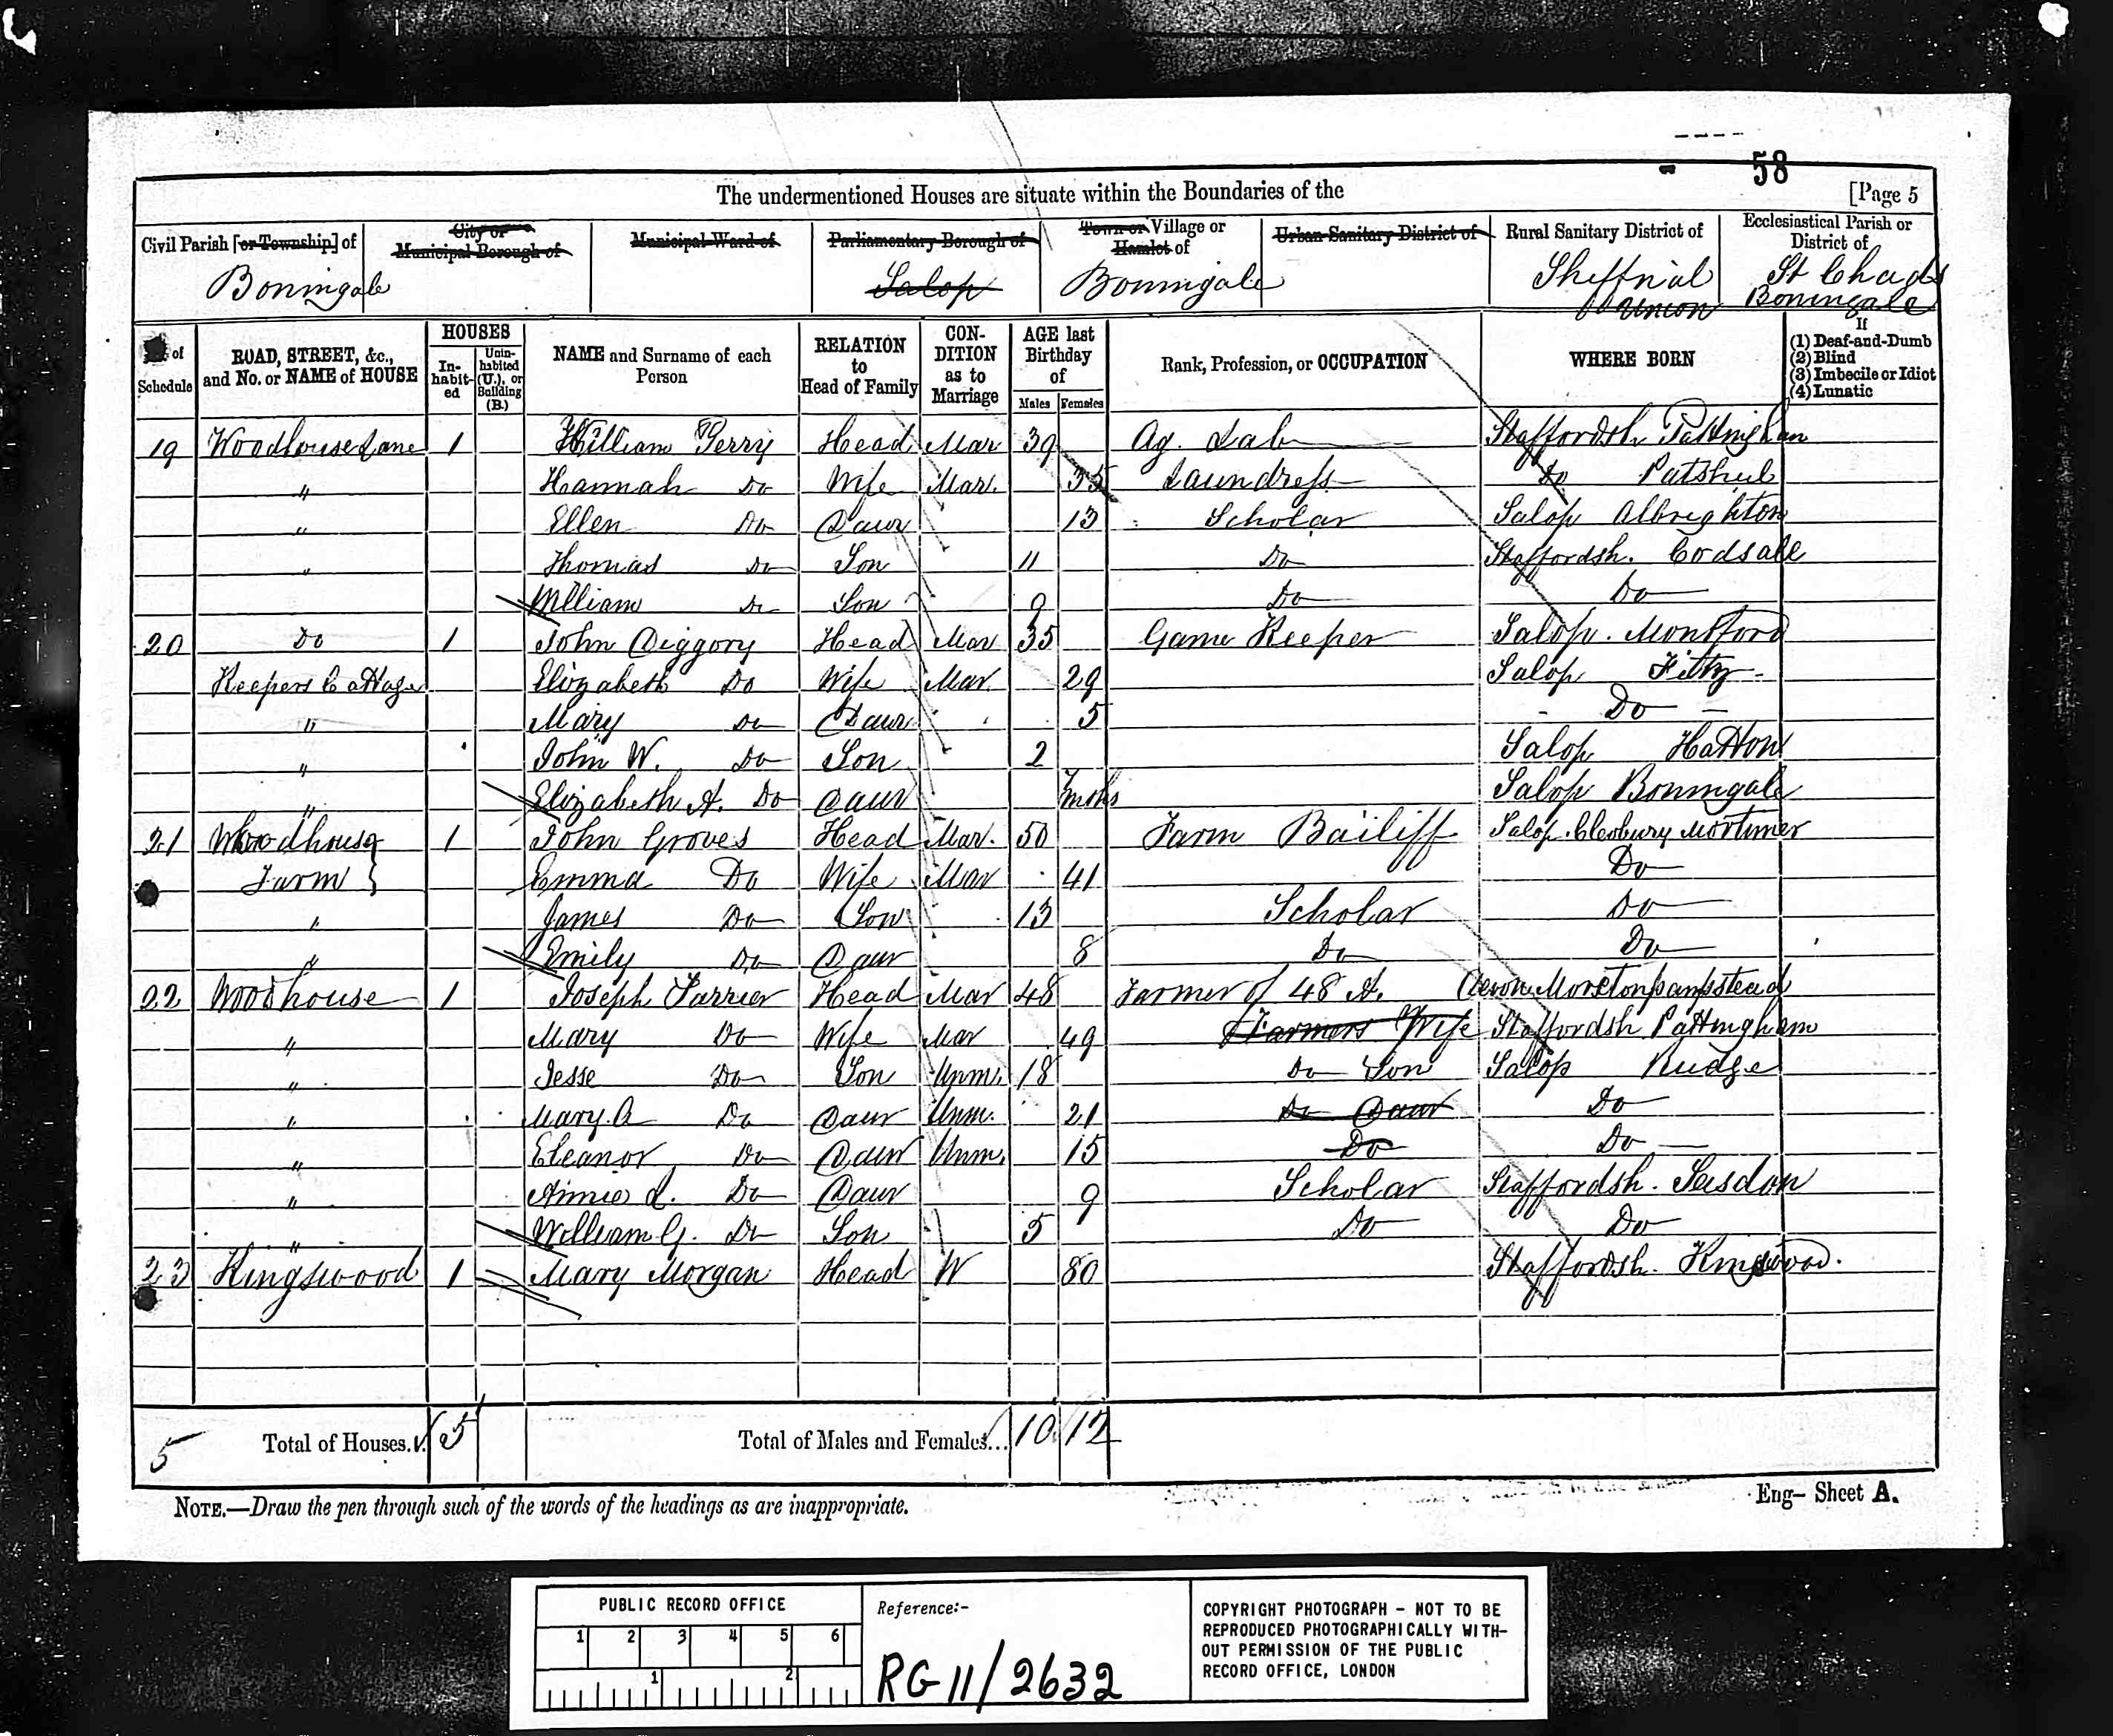 58
The undermentioned Houses are situate within the Boundaries of the [Page 5
Civil Parish [or Township] of
City or Municipal Borough of
Municipal Ward of
Parliamentary Borough of
Town or Village or Hamlet of
Urban Sanitary District of
Rural Sanitary District of
Ecclesiastical Parish or District of
Boningale Salop Boningale Sheffnial Union St Chads Boningale
of Schedule
ROAD, STREET, &c., and No. or NAME of HOUSE
HOUSES
In-habit-ed
Unin-habited (U.), or Building (B.)
NAME and Surname of each Person
RELATION to Head of Family
CON-DITION as to Marriage
AGE last Birthday of
Males Females
Rank, Profession, or OCCUPATION
WHERE BORN
If
(1) Deaf-and-Dumb
(2) Blind
(3) Imbecile or Idiot
(4) Lunatic
19 Woodhouse Lane 1 William Perry Head Mar 39 Ag. Lab Staffordsh Pattingham
" Hannah Do Wife Mar. 35 Laundress Do Patshul
" Ellen Do Daur 13 Scholar Salop Albrighton
" Thomas Do Son 11 Do Staffordsh. Codsall
William Do Son 9 Do Do
20 Do 1 John Diggory Head Mar 35 Game Keeper Salop. Montford
Keepers Cottage Elizabeth Do Wife Mar. 29 Salop Fitz
" Mary Do Daur 5 Do
" John W. Do Son 2 Salop Hatton
" Elizabeth A. Do Daur mths Salop Boningale
21 Woodhouse 1 John Groves Head Mar. 50 Farm Bailiff Salop. Cleobury Mortimer
Farm } Emma Do Wife Mar 41 Do
" James Do Son 13 Scholar Do
" Emily Do Daur 8 Do Do
22 Woodhouse 1 Joseph Farrier Head Mar 48 Farmer of 48 A. Devon Moretonhampstead
" Mary Do Wife Mar 49 Farmers Wife Staffordsh Pattingham
" Jesse Do Son Unm. 18 Do Son Salop Rudge
" Mary A Do Daur Unm. 21 Do Daur Do
" Eleanor Do Daur Unm. 15 Do Do
" Annie L. Do Daur 9 Scholar Staffordsh. Seisdon
" William G. Do Son 5 Do Do
23 Kingswood 1 Mary Morgan Head W 80 Staffordsh. Kingswood.
5 Total of Houses... 5 Total of Males and Females... 10 12
NOTE.—Draw the pen through such of the words of the headings as are inappropriate.
Eng- Sheet A.
PUBLIC RECORD OFFICE
1 2 3 4 5 6
1 2
Reference:-
RG 11/2632
COPYRIGHT PHOTOGRAPH - NOT TO BE
REPRODUCED PHOTOGRAPHICALLY WITH-
OUT PERMISSION OF THE PUBLIC
RECORD OFFICE, LONDON